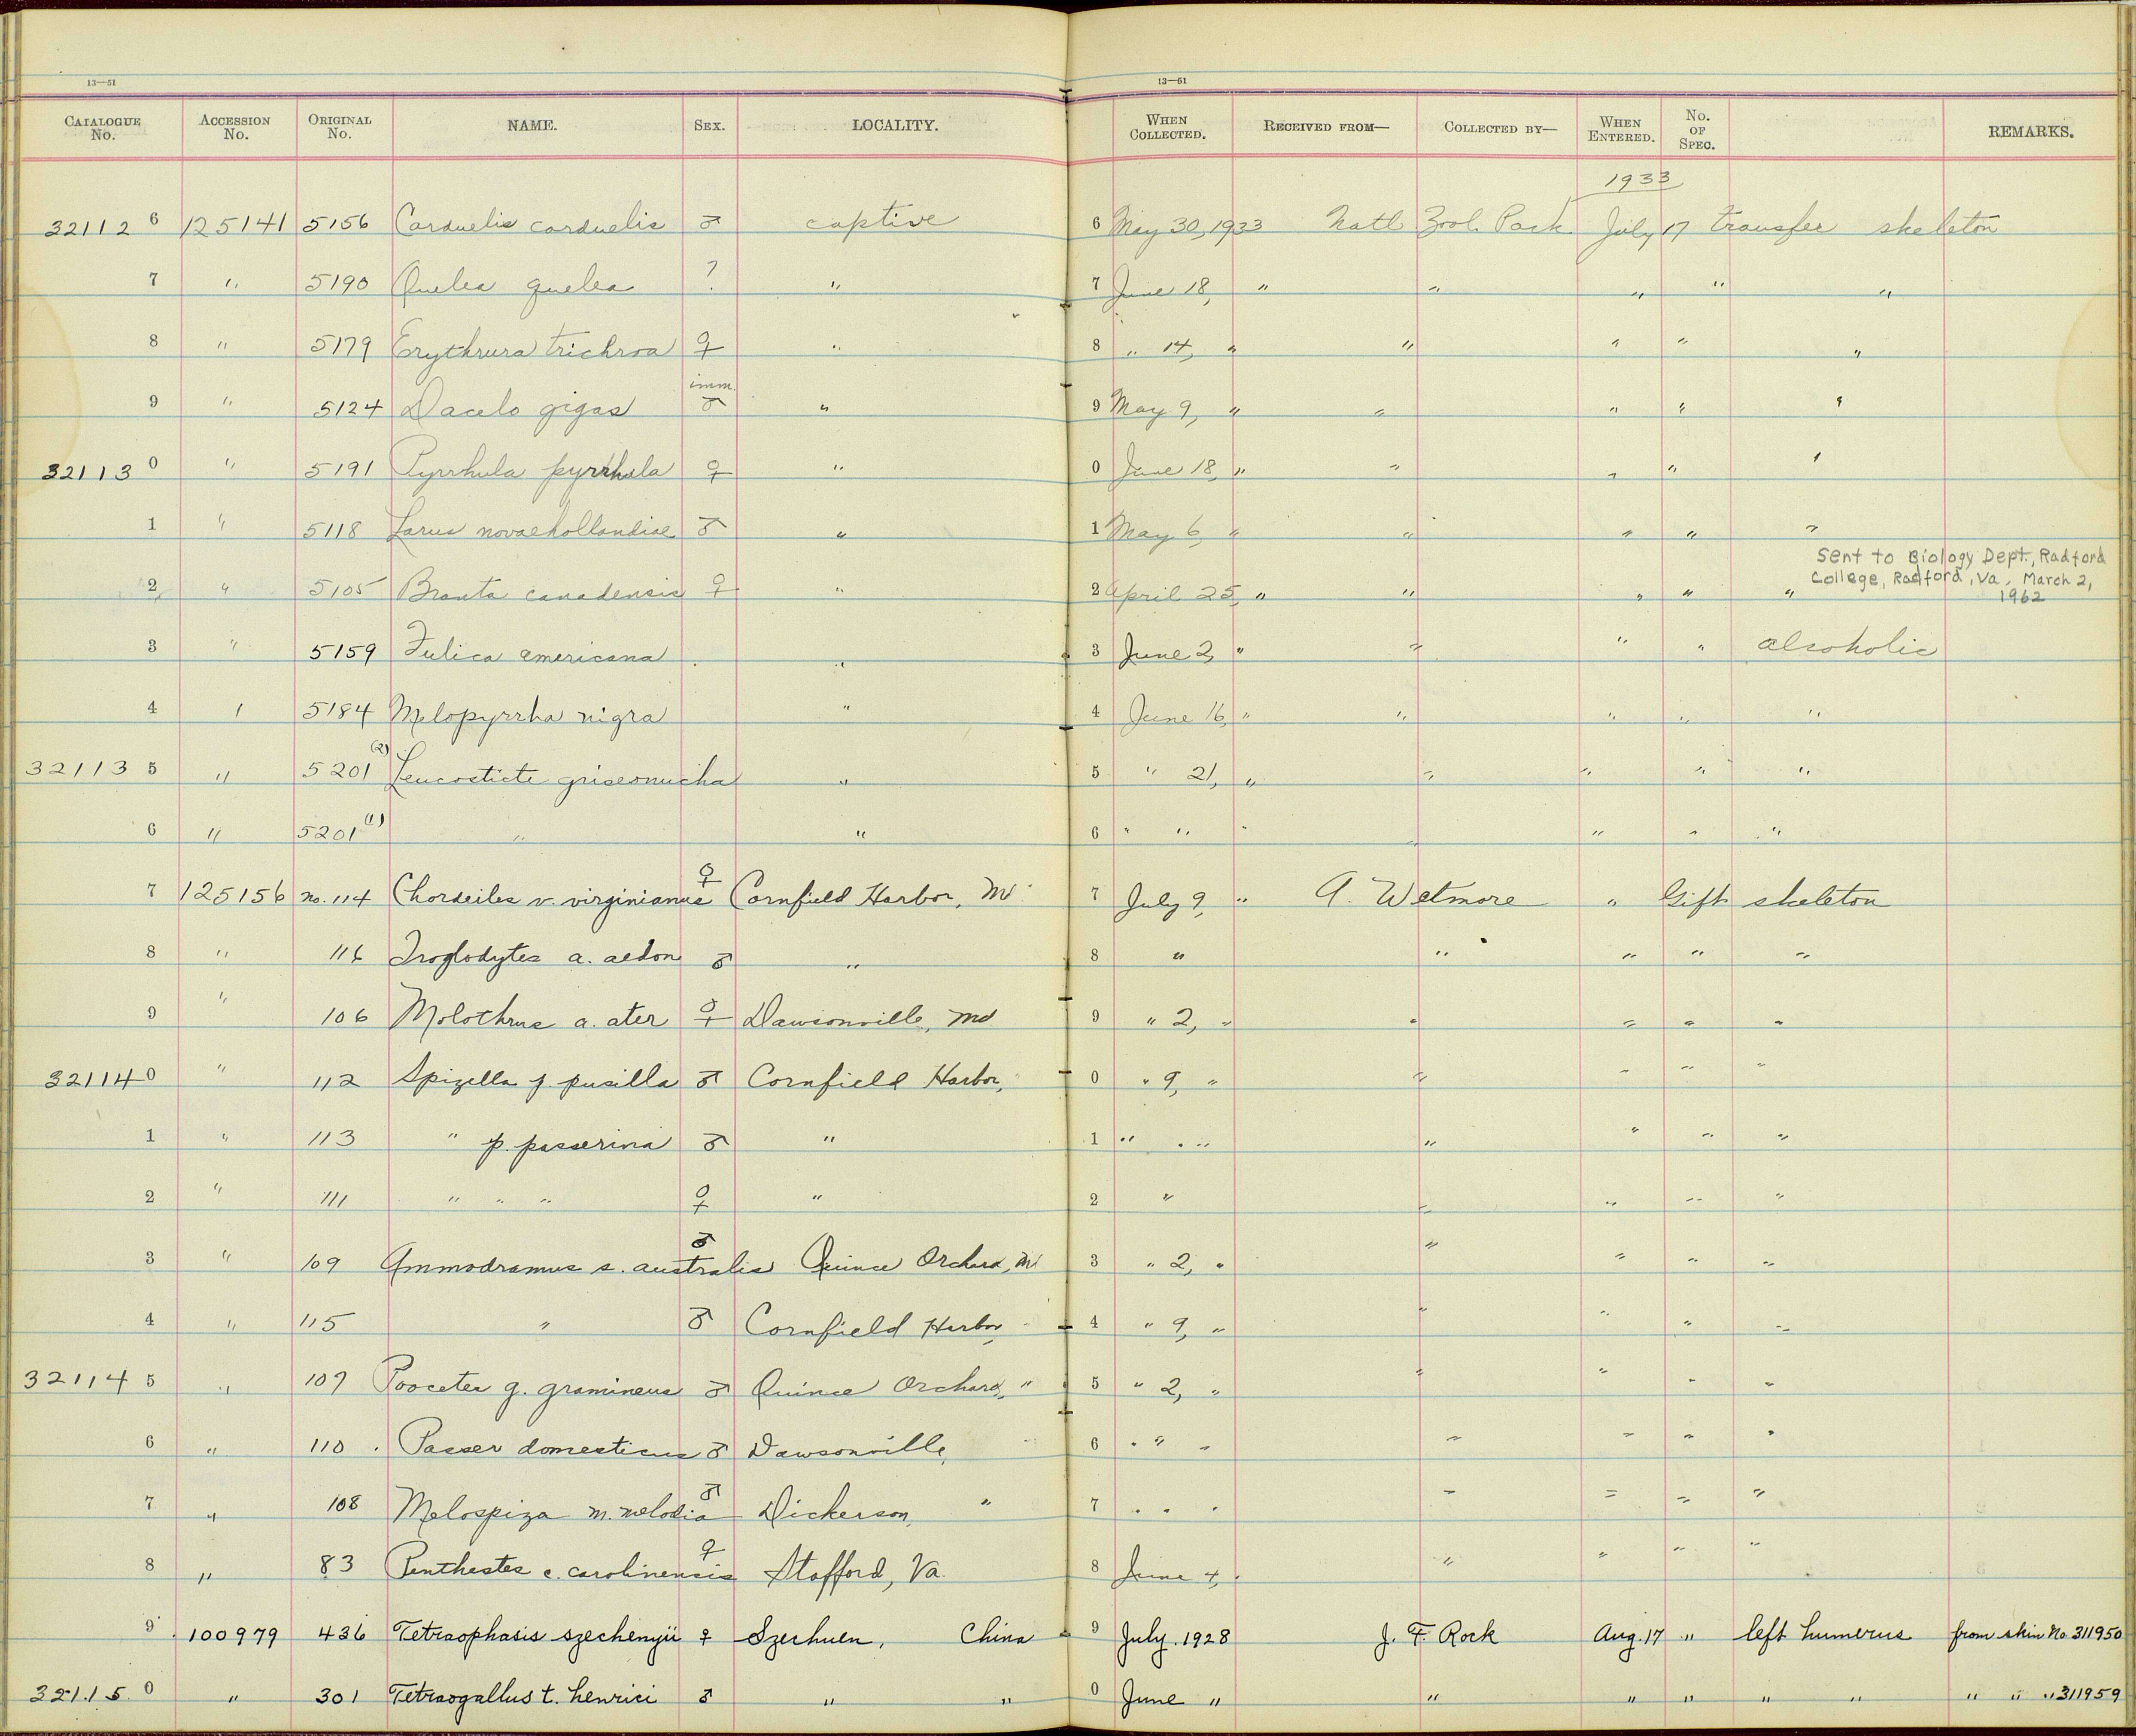 13—51 13—51
CATALOGUE No. ACCESSION No. ORIGINAL No. NAME. SEX. LOCALITY. WHEN COLLECTED. RECEIVED FROM— COLLECTED BY— WHEN ENTERED. No. OF SPEC. REMARKS.
1933
32112 6 125141 5156 Carduelis carduelis ♂ captive 6 May 30, 1933 Natl Zool. Park July 17 transfer skeleton
7 " 5190 Quelea quelea ? " 7 June 18, " " " " "
8 " 5179 Erythrura trichroa ♀ " 8 " 14, " " " " "
9 " 5124 Dacelo gigas imm. ♂ " 9 May 9, " " " " "
32113 0 " 5191 Pyrrhula pyrrhula ♀ " 0 June 18, " " " " "
1 " 5118 Larus novaehollandiae ♂ " 1 May 6, " " " " "
Sent to Biology Dept., Radford
College, Radford, Va. March 2,
1962
2 " 5105 Branta canadensis ♀ " 2 April 25, " " " " "
3 " 5159 Fulica americana . " 3 June 2, " " " " alcoholic
4 " 5184 Melopyrrha nigra " 4 June 16, " " " " "
32113 5 " 5201 (2) Leucosticte griseonucha " 5 " 21, " " " " "
6 " 5201 (1) " " 6 " " " " " " "
7 125156 no. 114 Chordeiles v. virginianus ♀ Cornfield Harbor, Md 7 July 9, " A. Wetmore " Gift skeleton
8 " 116 Troglodytes a. aedon ♂ " 8 " " " " "
9 " 106 Molothrus a. ater ♀ Dawsonville, Md 9 " 2, " " " " "
32114 0 " 112 Spizella p pusilla ♂ Cornfield Harbor, " 0 " 9, " " " " "
1 " 113 " p. passerina ♂ " 1 " " " " " " "
2 " 111 " " " ♀ " 2 " " " " "
3 " 109 Ammodramus s. australis ♂ Quince Orchard, Md 3 " 2, " " " " "
4 " 115 " ♂ Cornfield Harbor, " 4 " 9, " " " " "
32114 5 " 107 Pooecetes g. gramineus ♂ Quince Orchard, " 5 " 2, " " " " "
6 " 110 . Passer domesticus ♂ Dawsonville, " 6 " " " " " " "
7 " 108 Melospiza m. melodia ♂ Dickerson, " 7 " " " " " " "
8 " 83 Penthestes c. carolinensis ♀ Stafford, Va. 8 June 4, " " " " "
9 100979 436 Tetraophasis szechenyii ♀ Szechuen, China 9 July. 1928 J. F. Rock Aug. 17 " left humerus from skin No. 311950
32115 0 " 301 Tetraogallus t. henrici ♂ " " 0 June " " " " " " " " " 311959